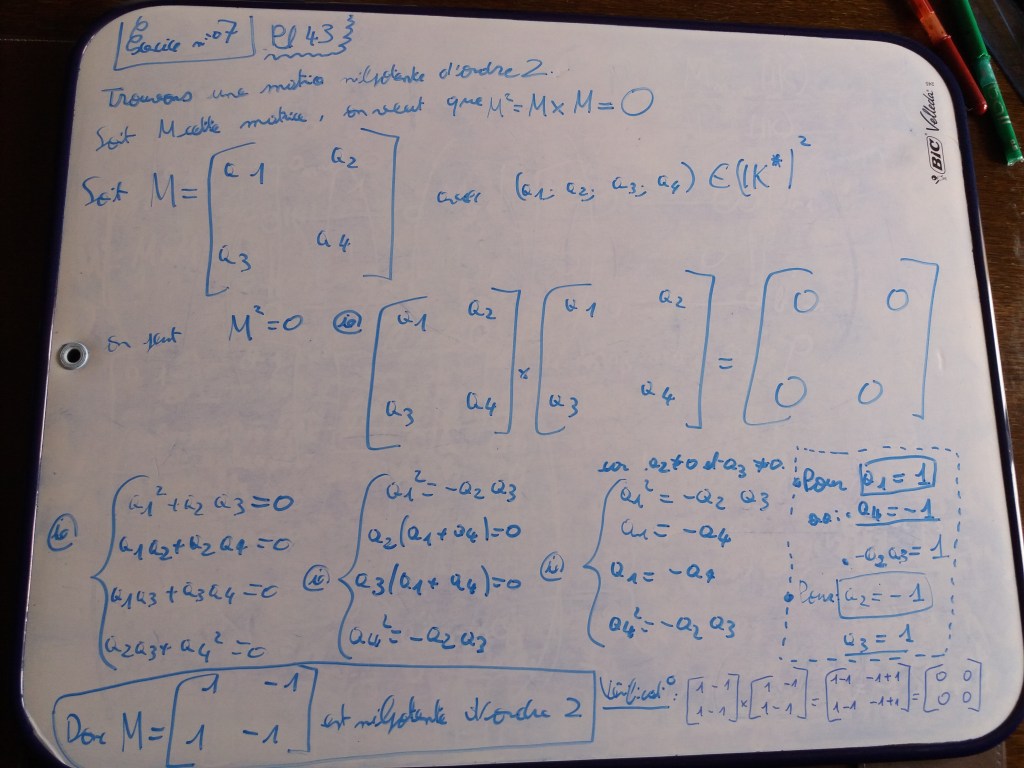 Exercice n°07 Pg 43
Trouvons une matrice nilpotente d'ordre 2.
Soit M cette matrice, on veut que M² = M × M = 0
BIC Velleda
Soit M = [a1 a2; a3 a4] avec (a1; a2; a3; a4) ∈ (IK*)²
M² = 0 [a1 a2; a3 a4] × [a1 a2; a3 a4] = [0 0; 0 0]
car a2≠0 et a3≠0.
a1² + a2 a3 = 0
a1a2 + a2 a4 = 0
a1a3 + a3a4 = 0
a2a3 + a4² = 0
a1² = -a2 a3
a2(a1 + a4) = 0
a3(a1 + a4) = 0
a4² = -a2 a3
a1² = -a2 a3
a1 = -a4
a1 = -a4
a4² = -a2 a3
Pour a1 = 1
a4 = -1
-a2a3 = 1
Pour a2 = -1
a3 = 1
Donc M = [1 -1; 1 -1] est nilpotente d'ordre 2
Vérificat°: [1 -1; 1 -1] × [1 -1; 1 -1] = [1-1 -1+1; 1-1 -1+1] = [0 0; 0 0]